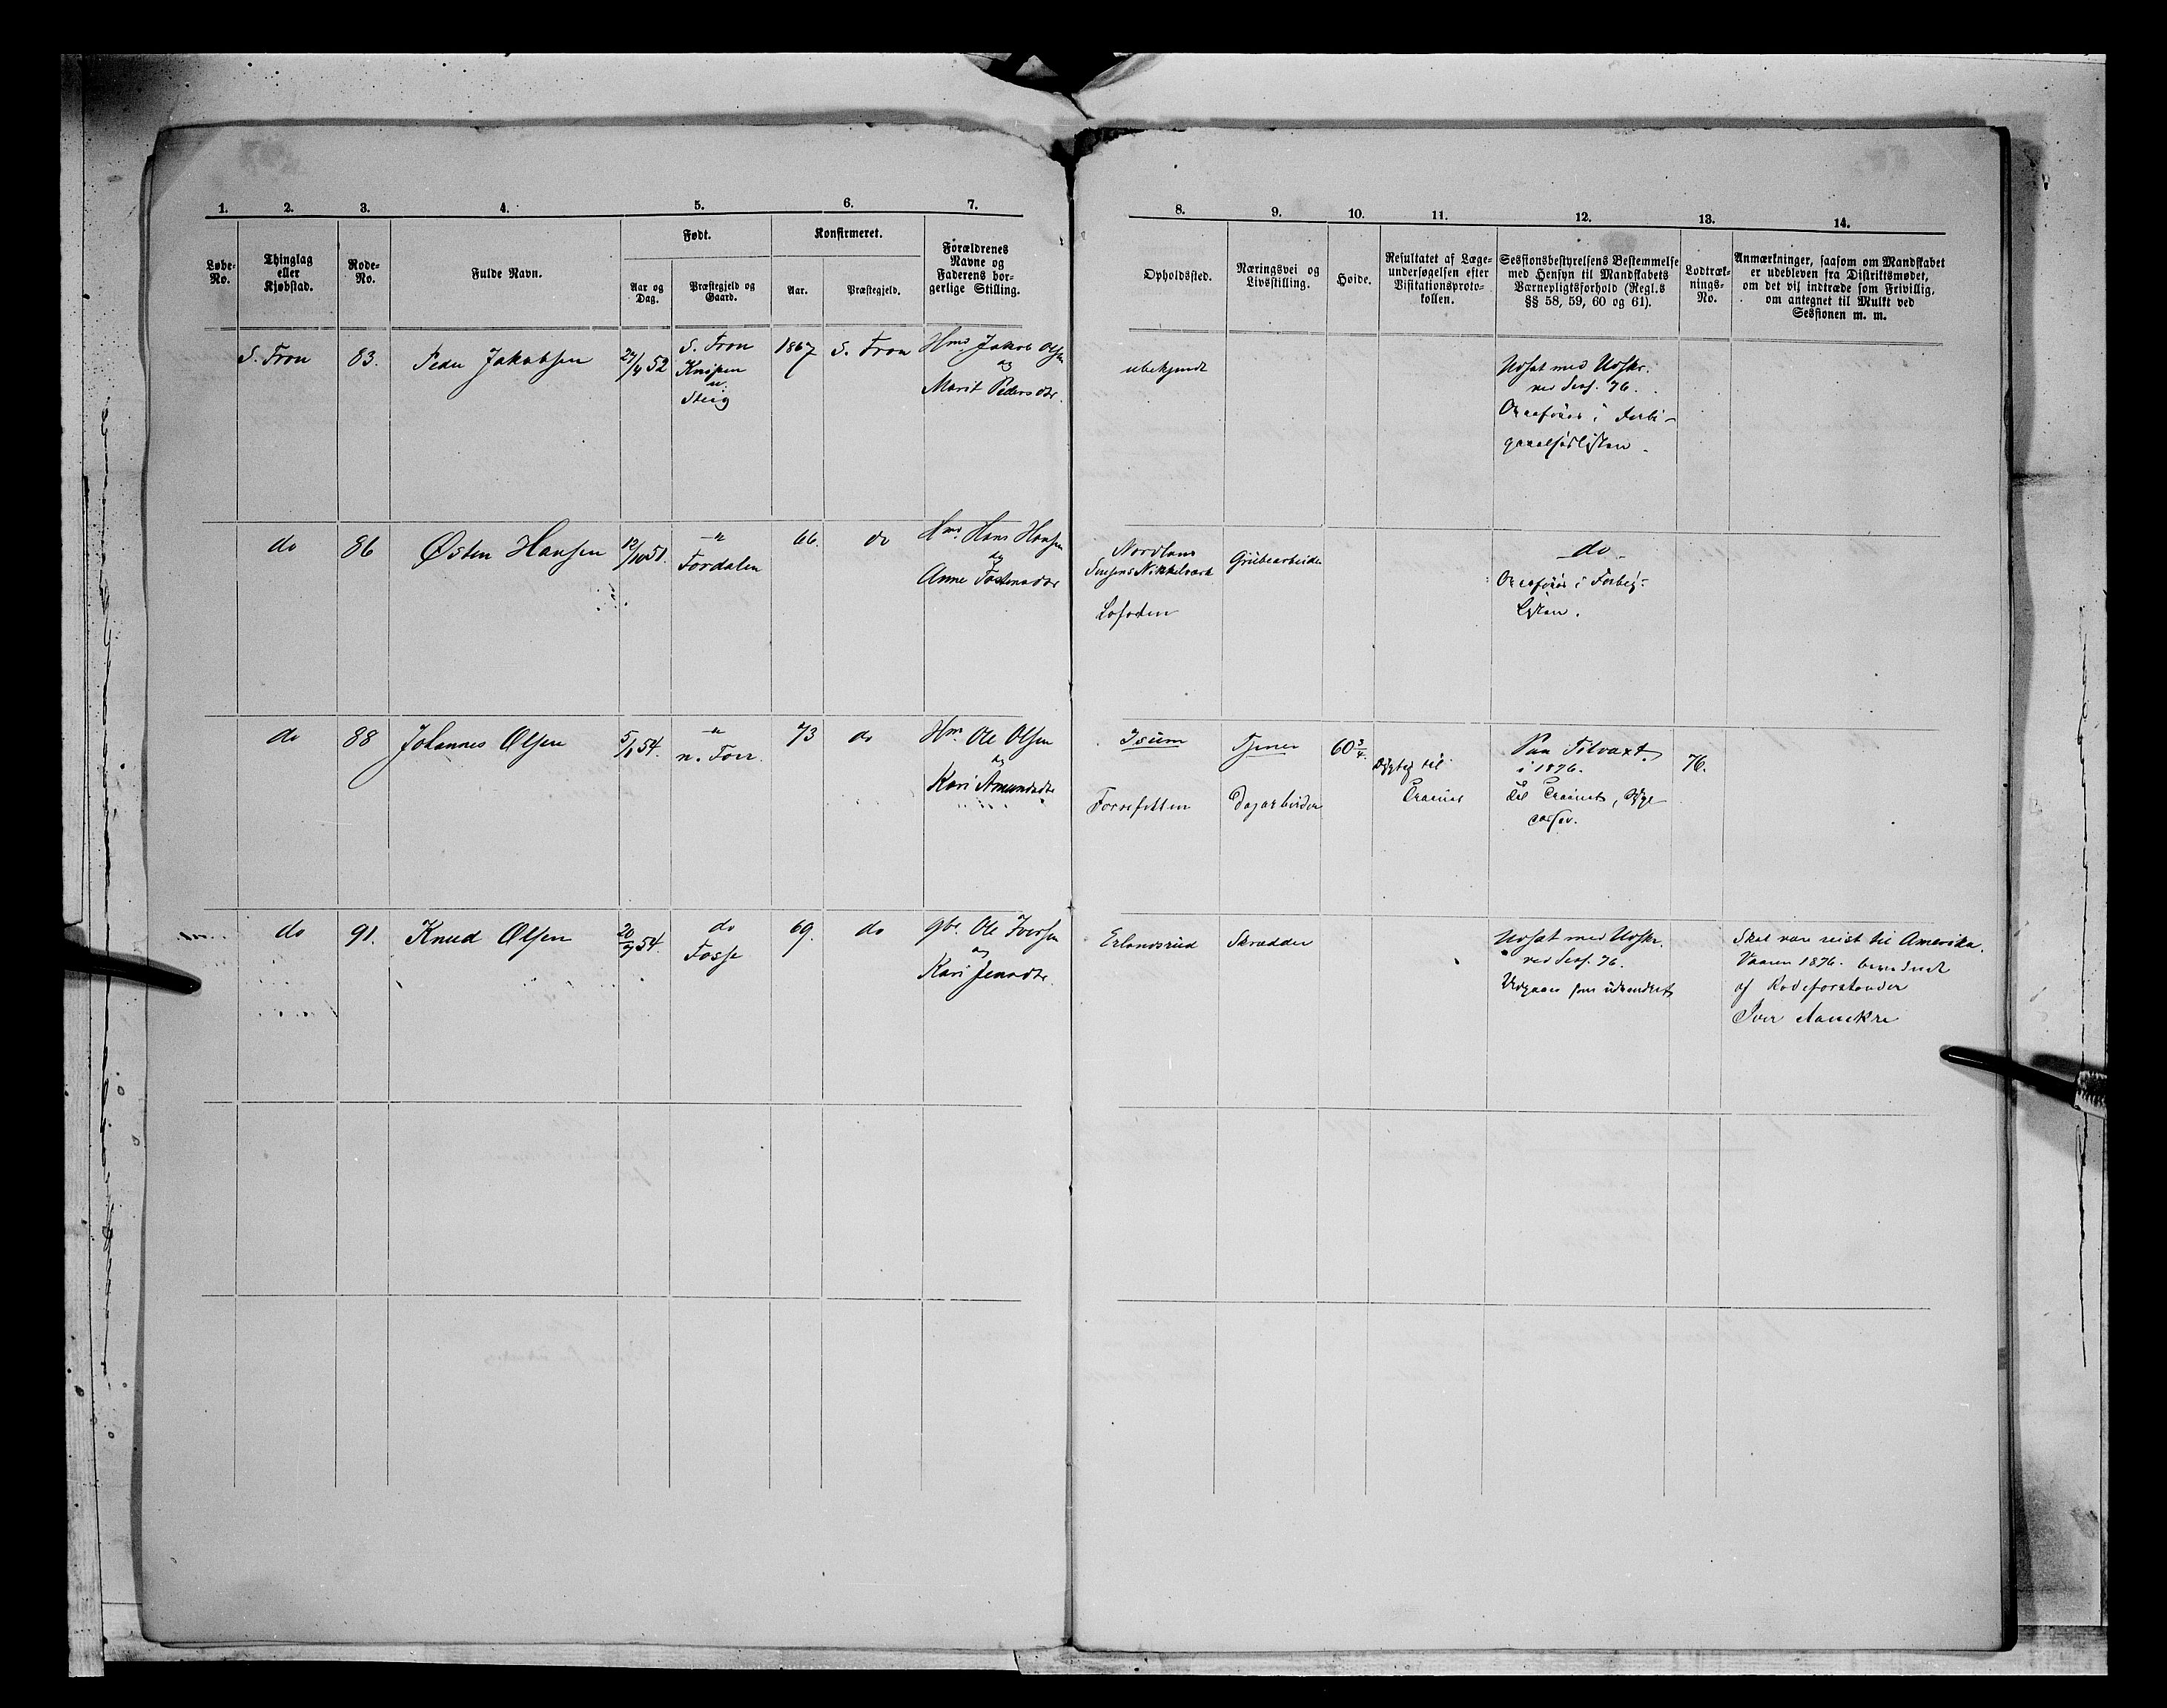 1. 2. 3. 4. 5. 6. 7.
Løbe-No. Thinglag eller Kjøbstad. Rode-No. Fulde Navn. Født. Konfirmeret. Forældrenes Navne og Faderens borgerlige Stilling.
Aar og Dag. Præstegjeld og Gaard. Aar. Præstegjeld.
S. Fron 83. Peder Jakobsen 24/4 52 S. Fron 1867 S. Fron Hmd Jakob Olsen
Knipen og
u. Marit Pedersdtr.
Steig
do 86 Østen Hansen 12/10 51. " 66. do Hmd. Hans Hansen
Fordalen og
Anne Tostensdtr
do 88 Johannes Olsen 5/1 54. " 73 do Hm. Ole Olsen
n. Forr. og
Kari Amundsdtr
do 91. Knud Olsen 20/9 54. do 69. do gbr. Ole Iversen
Fosse og
Kari Jensdtr.
8. 9. 10. 11. 12. 13. 14.
Opholdssted. Næringsvei og Livsstilling. Høide. Resultatet af Lægeundersøgelsen efter Visitationsprotokollen. Sessionsbestyrelsens Bestemmelse med Hensyn til Mandskabets Værnepligtsforhold (Regl.s §§ 58, 59, 60 og 61). Lodtræknings-No. Anmærkninger, saasom om Mandskabet er udebleven fra Distriktsmødet, om det vil indtræde som Frivillig, om antegnet til Mulkt ved Sessionen m. m.
ubekjendt Udsat med Udskr.
ved Sess. 76.
Overføres i Forbi-
gaaelseslisten.
Nordland Grubearbeider do
Senjens Nikkelværk Overføres i Forbig:
Listen.
Lofoten
Isum Tjener 60 3/4. Dygtig til Paa Tilvæxt. 76.
Trainet i 1876.
Forrefitten Dagarbeider Til Trainet,
Erlandsrud Skrædder Udsat med Udskr. Skal være reist til Amerika
ved Sess. 76. Vaaren 1876.
Udgaaer som udvandret af Rodeforstander
Iver